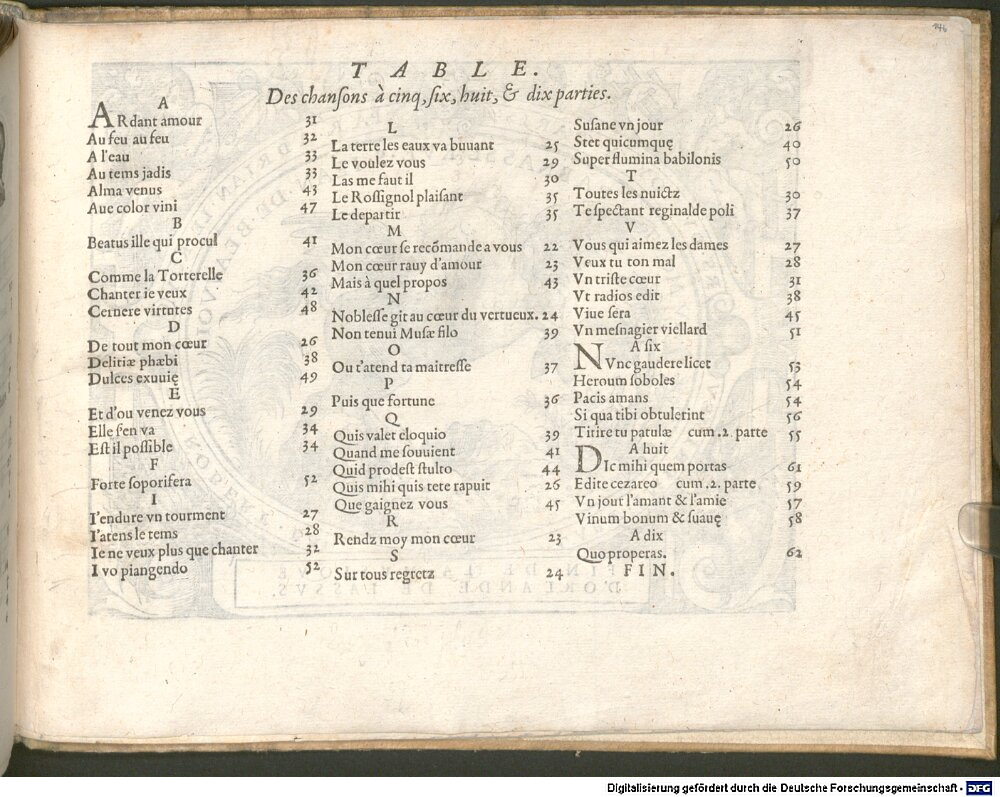 146
TABLE.
Des chanſons à cinq, ſix, huit, & dix parties.
A
ARdant amour 31
Au feu au feu 32
A l'eau 33
Au tems jadis 33
Alma venus 43
Aue color vini 47
B
Beatus ille qui procul 41
C
Comme la Torterelle 36
Chanter ie veux 42
Cernere virtutes 48
D
De tout mon cœur 26
Delitiæ phæbi 38
Dulces exuuię 49
E
Et d'ou venez vous 29
Elle ſ'en va 34
Eſt il poſſible 34
F
Forte ſoporifera 52
I
I'endure vn tourment 27
I'atens le tems 28
Ie ne veux plus que chanter 32
I vo piangendo 52
L
La terre les eaux va buuant 25
Le voulez vous 29
Las me faut il 30
Le Roſſignol plaiſant 35
Le departir 35
M
Mon cœur ſe recõmande a vous 22
Mon cœur rauy d'amour 23
Mais à quel propos 43
N
Nobleſſe git au cœur du vertueux. 24
Non tenui Muſæ filo 39
O
Ou t'atend ta maitreſſe 37
P
Puis que fortune 36
Q
Quis valet eloquio 39
Quand me ſouuient 41
Quid prodeſt ſtulto 44
Quis mihi quis tete rapuit 26
Que gaignez vous 45
R
Rendz moy mon cœur 23
S
Sur tous regretz 24
Suſane vn jour 26
Stet quicumquę 40
Super flumina babilonis 50
T
Toutes les nuictz 30
Te ſpectant reginalde poli 37
V
Vous qui aimez les dames 27
Veux tu ton mal 28
Vn triſte cœur 31
Vt radios edit 38
Viue ſera 45
Vn meſnagier viellard 51
A ſix
NVnc gaudere licet 53
Heroum ſoboles 54
Pacis amans 54
Si qua tibi obtulerint 56
Titire tu patulæ cum .2. parte 55
A huit
DIc mihi quem portas 61
Edite cezareo cum .2. parte 59
Vn jour l'amant & l'amie 57
Vinum bonum & ſuauę 58
A dix
Quo properas. 62
FIN.
Digitalisierung gefördert durch die Deutsche Forschungsgemeinschaft - DFG